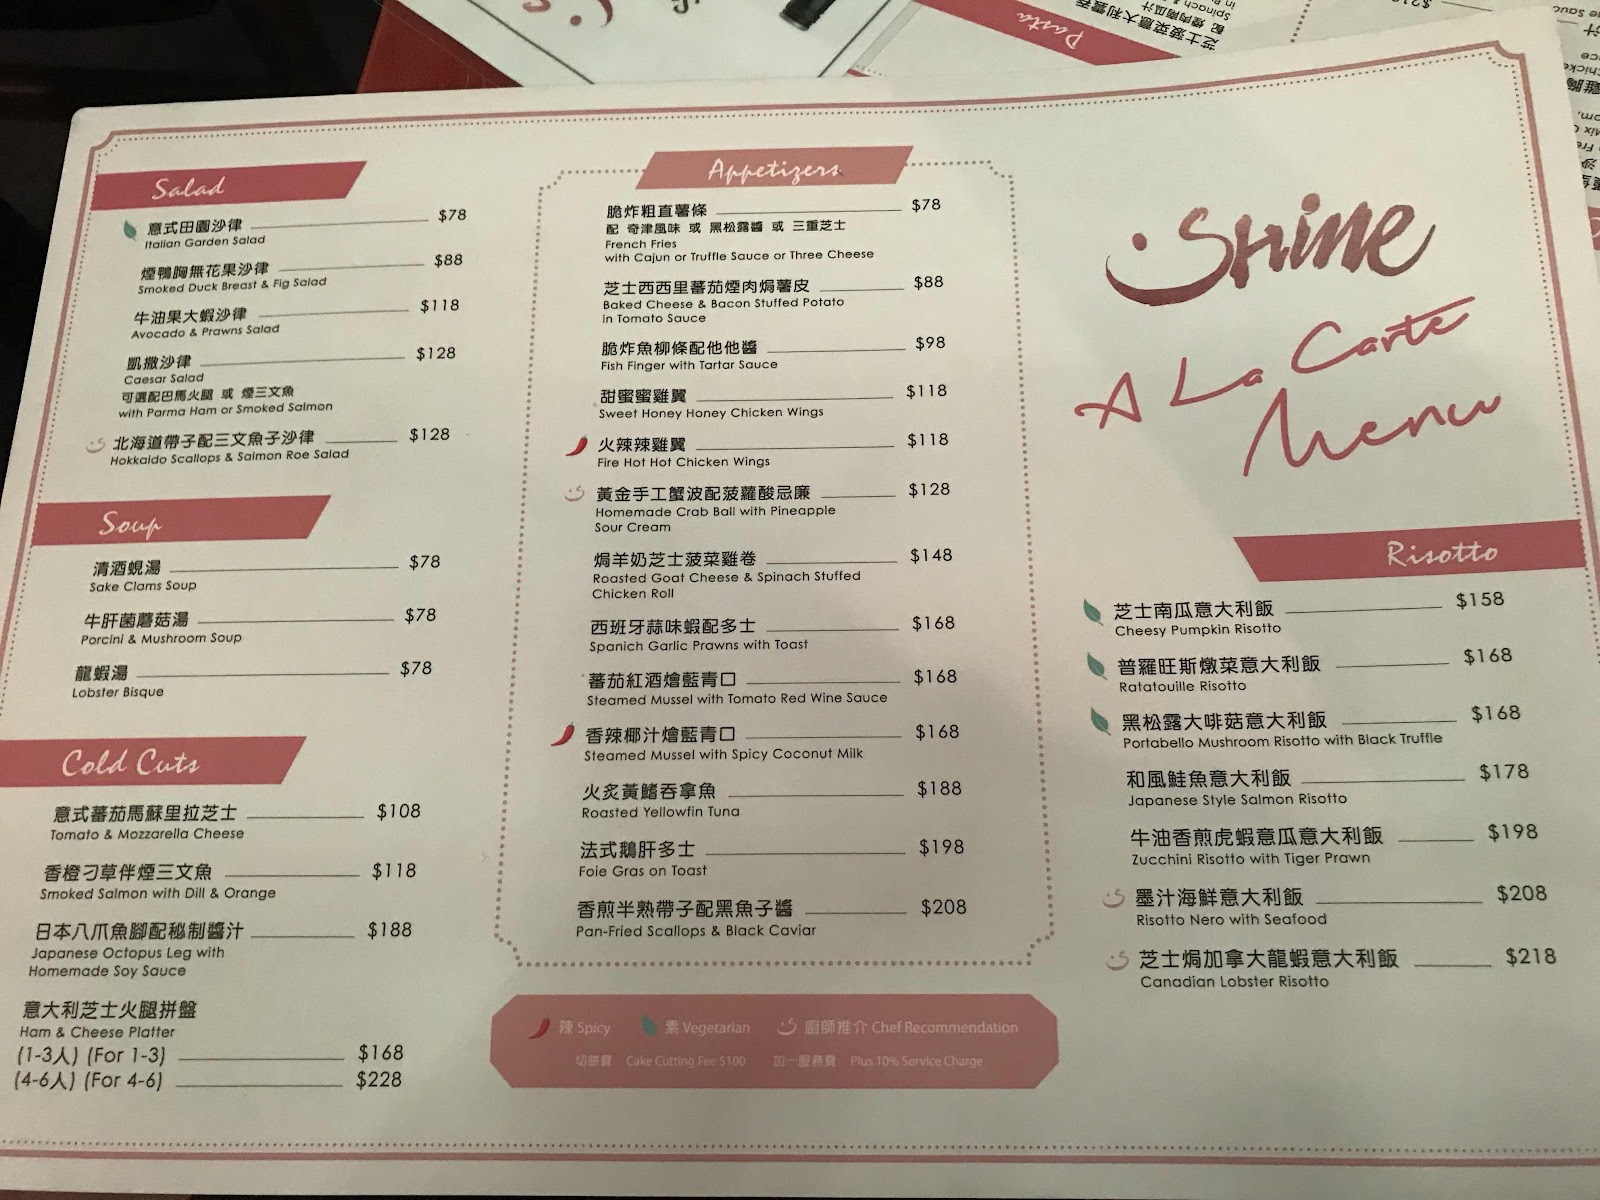 Salad
意式田園沙律 $78
Italian Garden Salad
煙鴨胸無花果沙律 $88
Smoked Duck Breast & Fig Salad
牛油果大蝦沙律 $118
Avocado & Prawns Salad
凱撒沙律 $128
Caesar Salad
可選配巴馬火腿 或 煙三文魚
with Parma Ham or Smoked Salmon
北海道帶子配三文魚子沙律 $128
Hokkaido Scallops & Salmon Roe Salad
Soup
清酒蜆湯 $78
Sake Clams Soup
牛肝菌蘑菇湯 $78
Porcini & Mushroom Soup
龍蝦湯 $78
Lobster Bisque
Cold Cuts
意式蕃茄馬蘇里拉芝士 $108
Tomato & Mozzarella Cheese
香橙刁草伴煙三文魚 $118
Smoked Salmon with Dill & Orange
日本八爪魚腳配秘制醬汁 $188
Japanese Octopus Leg with
Homemade Soy Sauce
意大利芝士火腿拼盤
Ham & Cheese Platter
(1-3人) (For 1-3) $168
(4-6人) (For 4-6) $228
Appetizers
脆炸粗直薯條 $78
配 奇津風味 或 黑松露醬 或 三重芝士
French Fries
with Cajun or Truffle Sauce or Three Cheese
芝士西西里蕃茄煙肉焗薯皮 $88
Baked Cheese & Bacon Stuffed Potato
in Tomato Sauce
脆炸魚柳條配他他醬 $98
Fish Finger with Tartar Sauce
甜蜜蜜雞翼 $118
Sweet Honey Honey Chicken Wings
火辣辣雞翼 $118
Fire Hot Hot Chicken Wings
黃金手工蟹波配菠蘿酸忌廉 $128
Homemade Crab Ball with Pineapple
Sour Cream
焗羊奶芝士菠菜雞卷 $148
Roasted Goat Cheese & Spinach Stuffed
Chicken Roll
西班牙蒜味蝦配多士 $168
Spanich Garlic Prawns with Toast
蕃茄紅酒燴藍青口 $168
Steamed Mussel with Tomato Red Wine Sauce
香辣椰汁燴藍青口 $168
Steamed Mussel with Spicy Coconut Milk
火炙黃鰭吞拿魚 $188
Roasted Yellowfin Tuna
法式鵝肝多士 $198
Foie Gras on Toast
香煎半熟帶子配黑魚子醬 $208
Pan-Fried Scallops & Black Caviar
辣 Spicy 素 Vegetarian 廚師推介 Chef Recommendation
切餅費 Cake Cutting Fee $100 加一服務費 Plus 10% Service Charge
Shine
A La Carte
Menu
Risotto
芝士南瓜意大利飯 $158
Cheesy Pumpkin Risotto
普羅旺斯燉菜意大利飯 $168
Ratatouille Risotto
黑松露大啡菇意大利飯 $168
Portabello Mushroom Risotto with Black Truffle
和風鮭魚意大利飯 $178
Japanese Style Salmon Risotto
牛油香煎虎蝦意瓜意大利飯 $198
Zucchini Risotto with Tiger Prawn
墨汁海鮮意大利飯 $208
Risotto Nero with Seafood
芝士焗加拿大龍蝦意大利飯 $218
Canadian Lobster Risotto
Pasta
芝士菠菜意大利雲吞
配 燒肉南瓜汁